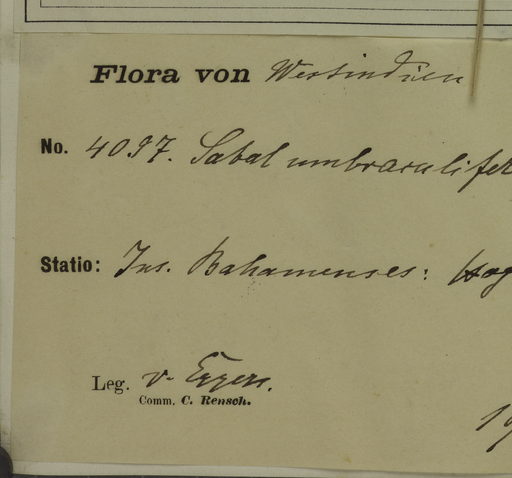 Flora von Westindien
No. 4097. Sabal umbraculifer
Statio: Ins. Bahamenses: Hog
Leg. v. Eggers.
Comm. C. Rensch.
19